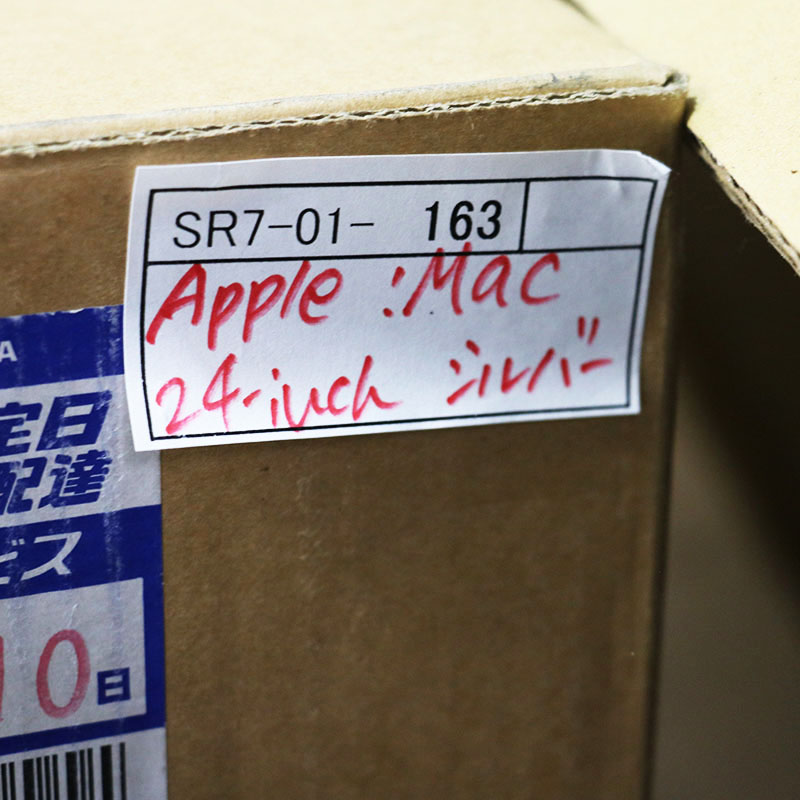 SR7-01- 163
Apple iMac
24-inch シルバー
A
定日
配達
ビス
10日